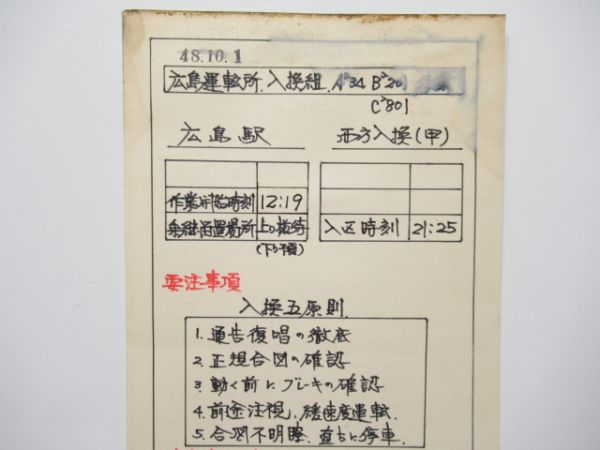 48.10.1
広島運転所.入換組. A734 B720
C7801
広島駅 西方入換(甲)
作業開始時刻 12:19
乗継留置場所 上り接待
(下り予)
入区時刻 21:25
要注事項
入換五原則
1. 通告復唱の徹底
2. 正規合図の確認
3. 動く前にブレーキの確認
4. 前途注視、緩速度運転.
5. 合図不明瞭.直ちに停車.